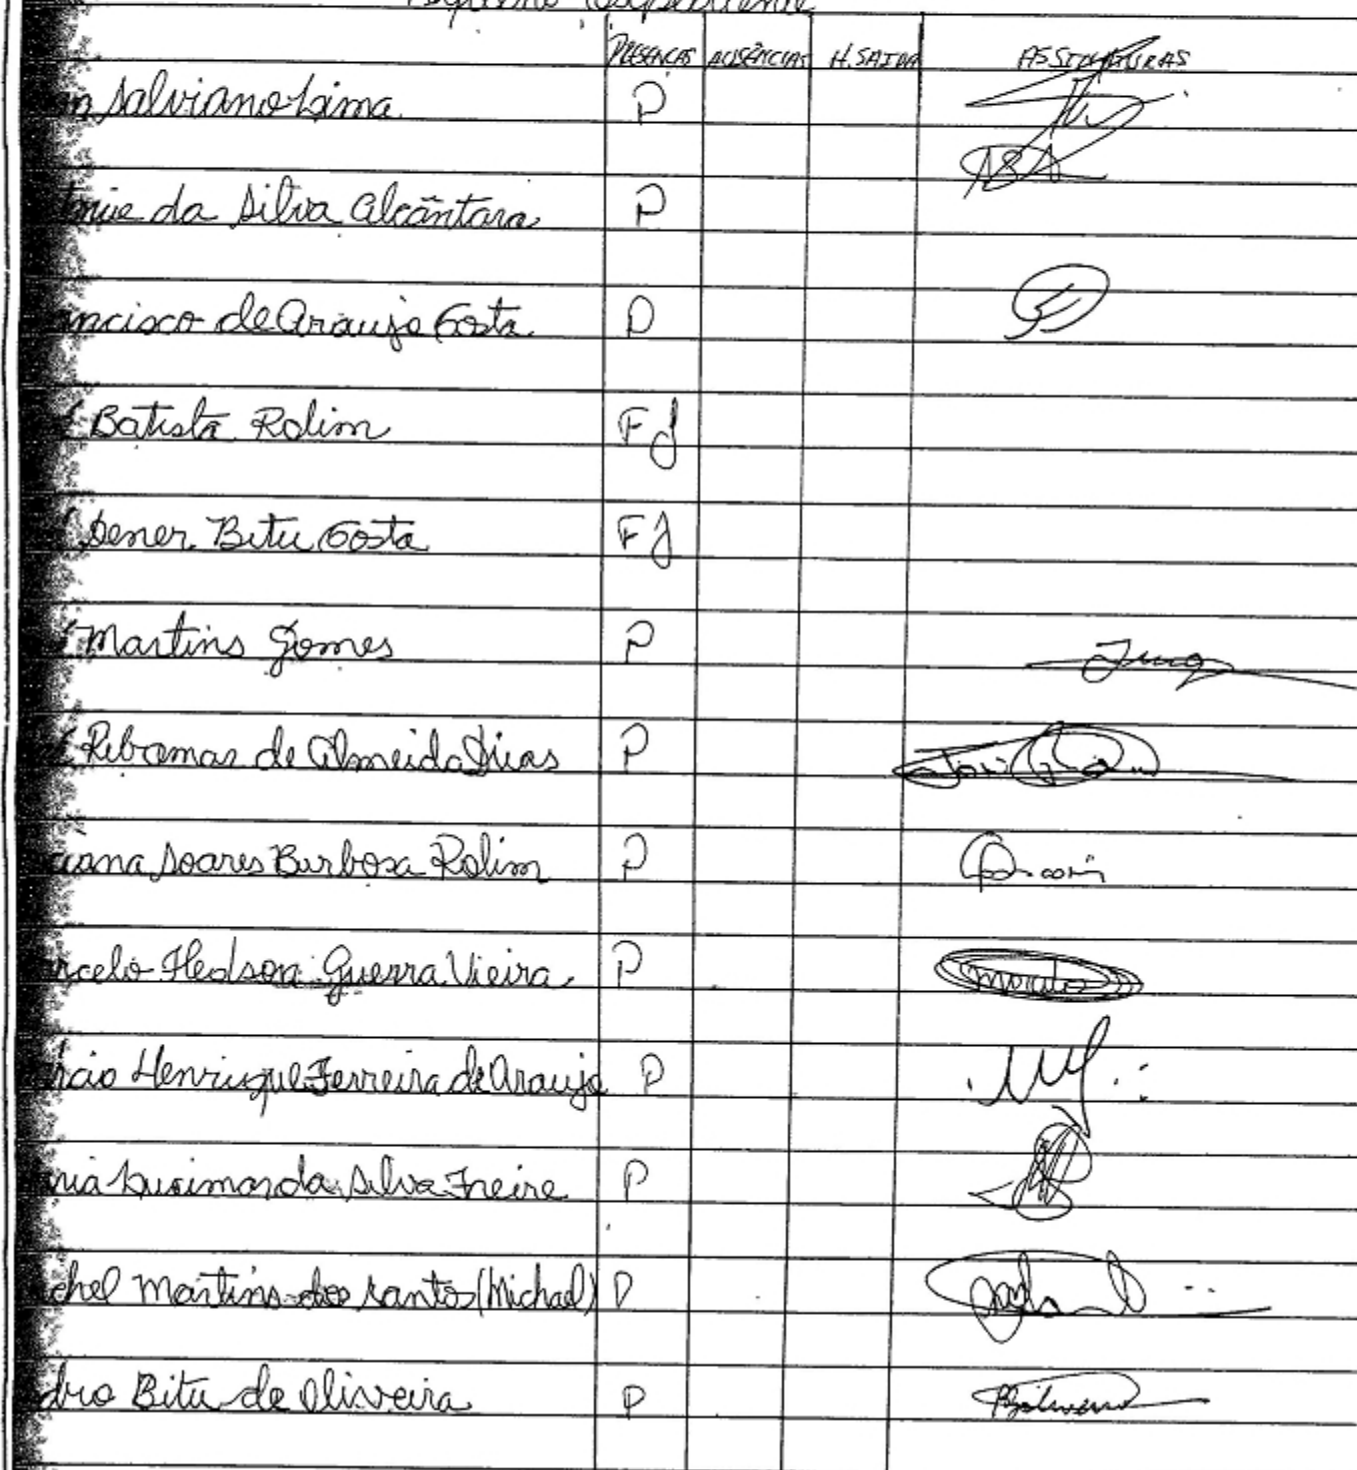 Pequeno Expediente
PRESENCAS AUSÊNCIAS H. SAIDA ASSINATURAS
n Salviano Lima P
da Silva Alcântara P
ncisco de Araujo Costa P
Batista Rolim FJ
Dener Bitu Costa FJ
Martins Gomes P
Ribamar de Almeida Dias P
ciana Soares Barbosa Rolim P
rcelo Hedson Guerra Vieira P
rcio Henrique Ferreira de Araujo P
ria Lucimar da Silva Freire P
chel Martins dos Santos (Michael) P
dro Bitu de Oliveira P